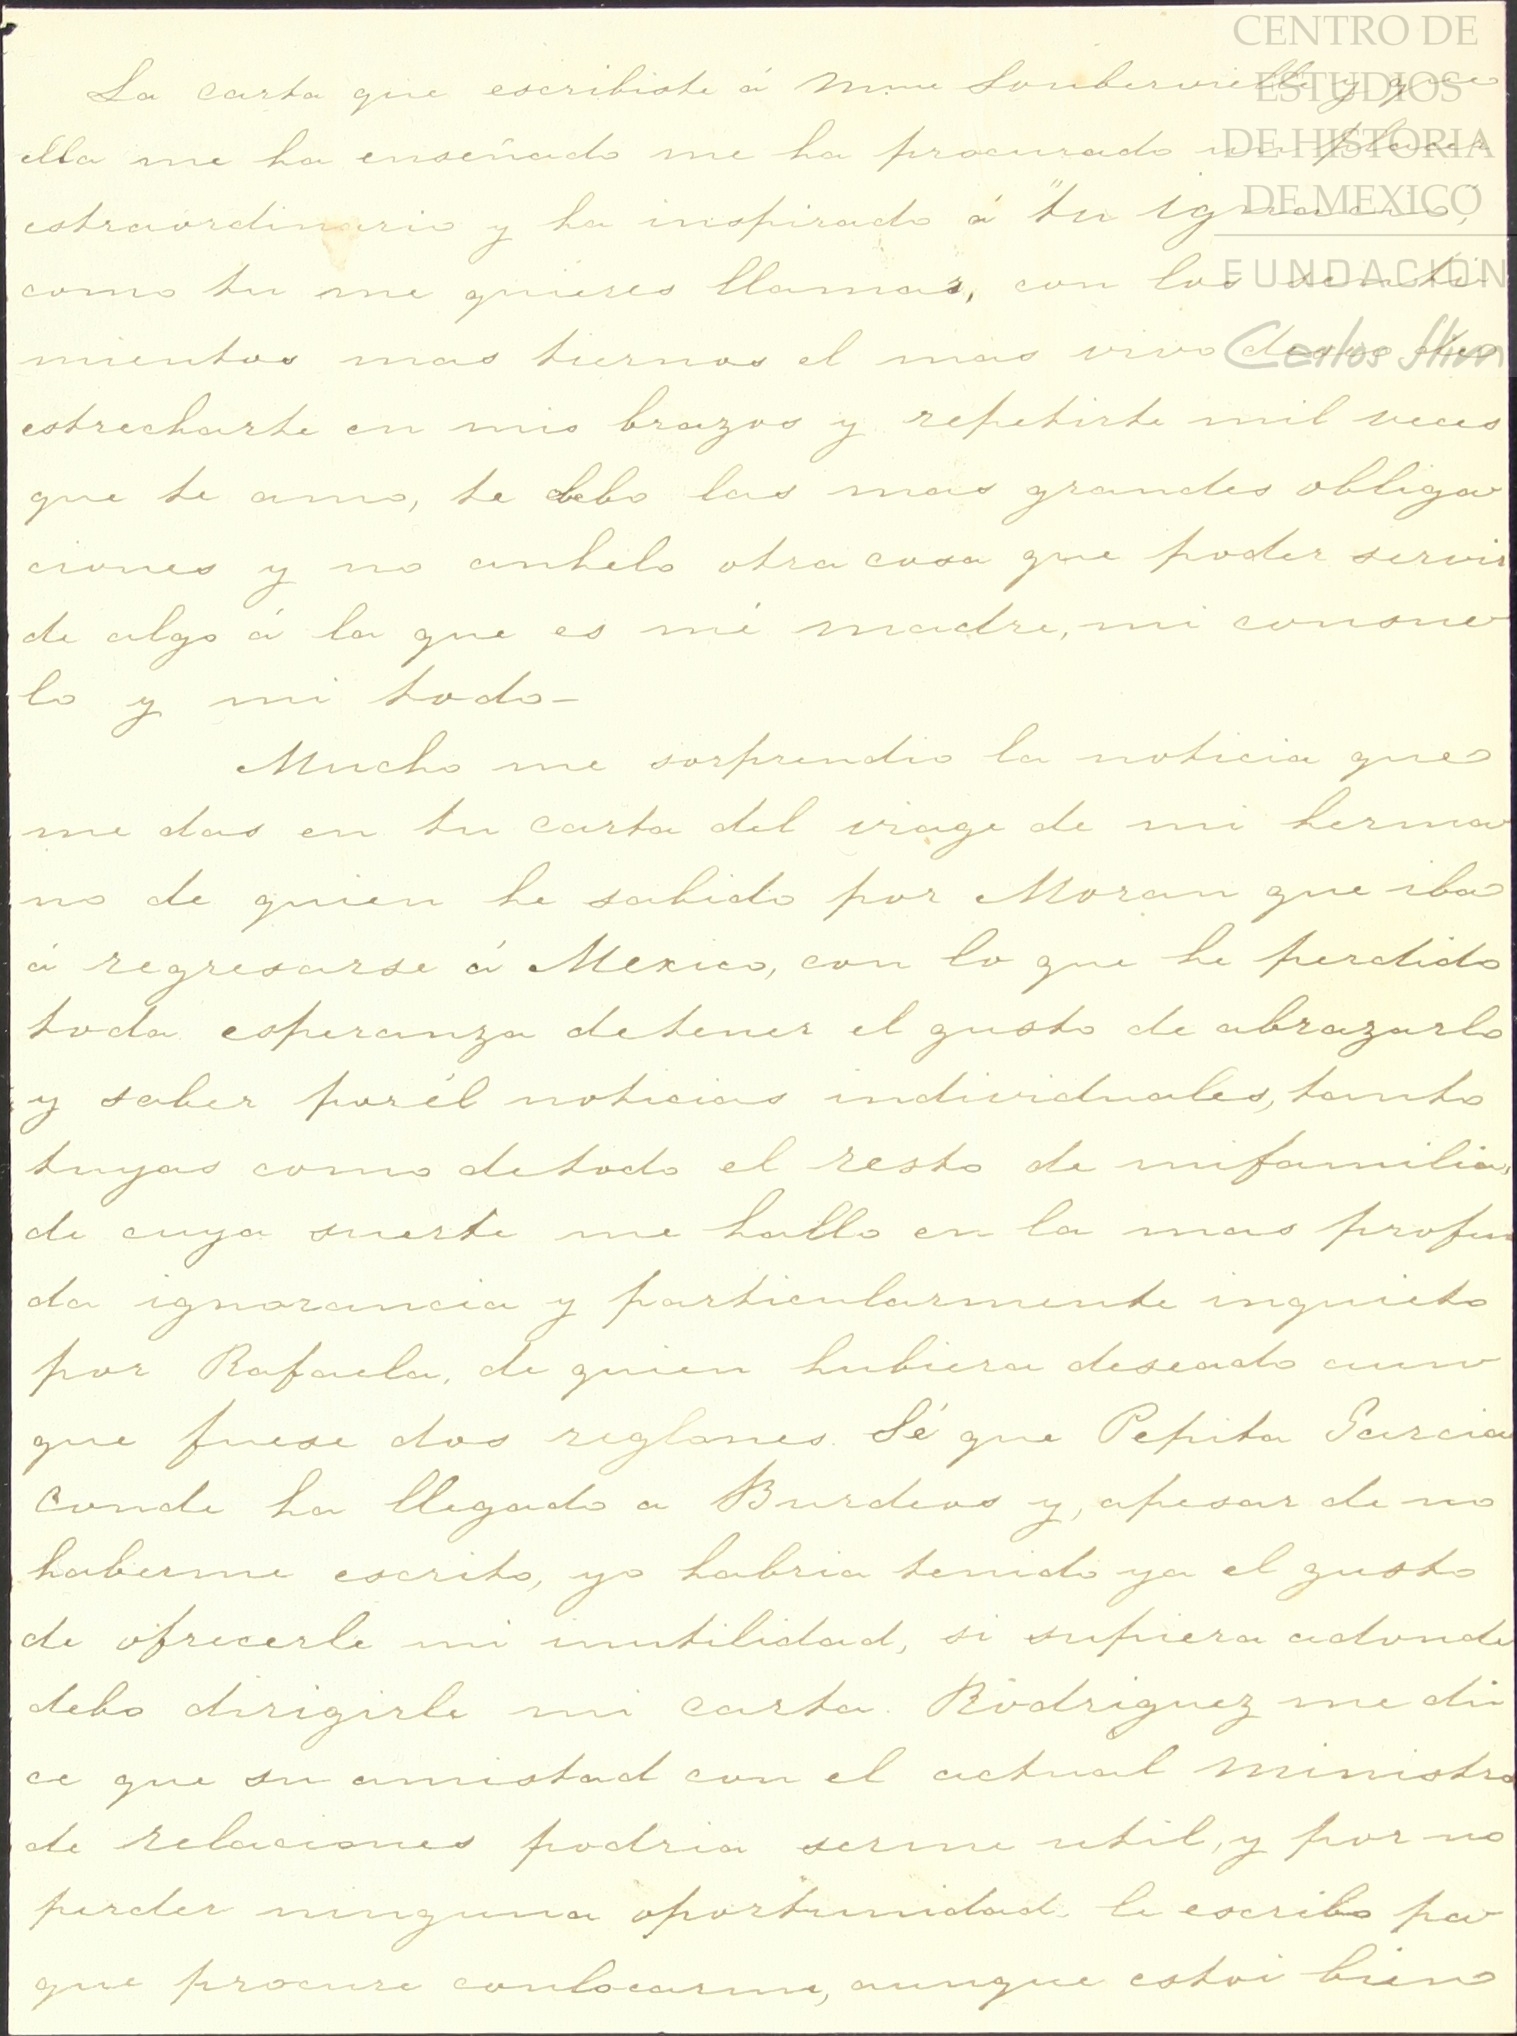 CENTRO DE
ESTUDIOS
DE HISTORIA
DE MEXICO
FUNDACION
Carlos Slim
La carta que escribiste á Mme Soubervielle y que
ella me ha enseñado me ha procurado un placer
estraordinario y ha inspirado á "tu Ignacio",
como tu me quieres llamar, con los senti-
mientos mas tiernos el mas vivo deseo de
estrecharte en mis brazos y repetirte mil veces
que te amo, te debo las mas grandes obliga
ciones y no anhelo otra cosa que poder servir
de algo á la que es mi madre, mi consue
lo y mi todo-
Mucho me sorprendio la noticia que
me das en tu carta del viage de mi herma
no de quien he sabido por Moran que iba
á regresarse á Mexico, con lo que he perdido
toda esperanza de tener el gusto de abrazarlo
y saber por él noticias individuales, tanto
tuyas como de todo el resto de mi familia,
de cuya suerte me hallo en la mas profun
da ignorancia y particularmente inquieto
por Rafaela, de quien hubiera deseado aun
que fuese dos reglones. Sé que Pepita Garcia
Conde ha llegado a Burdeos y, apesar de no
haberme escrito, yo habria tenido ya el gusto
de ofrecerle mi inutilidad, si supiera adonde
debo dirigirle mi carta. Rodriguez me di
ce que su amistad con el actual ministro
de relaciones podria serme util, y por no
perder ninguna oportunidad le escribo pa
que procure conlocarme, aunque estoi bien